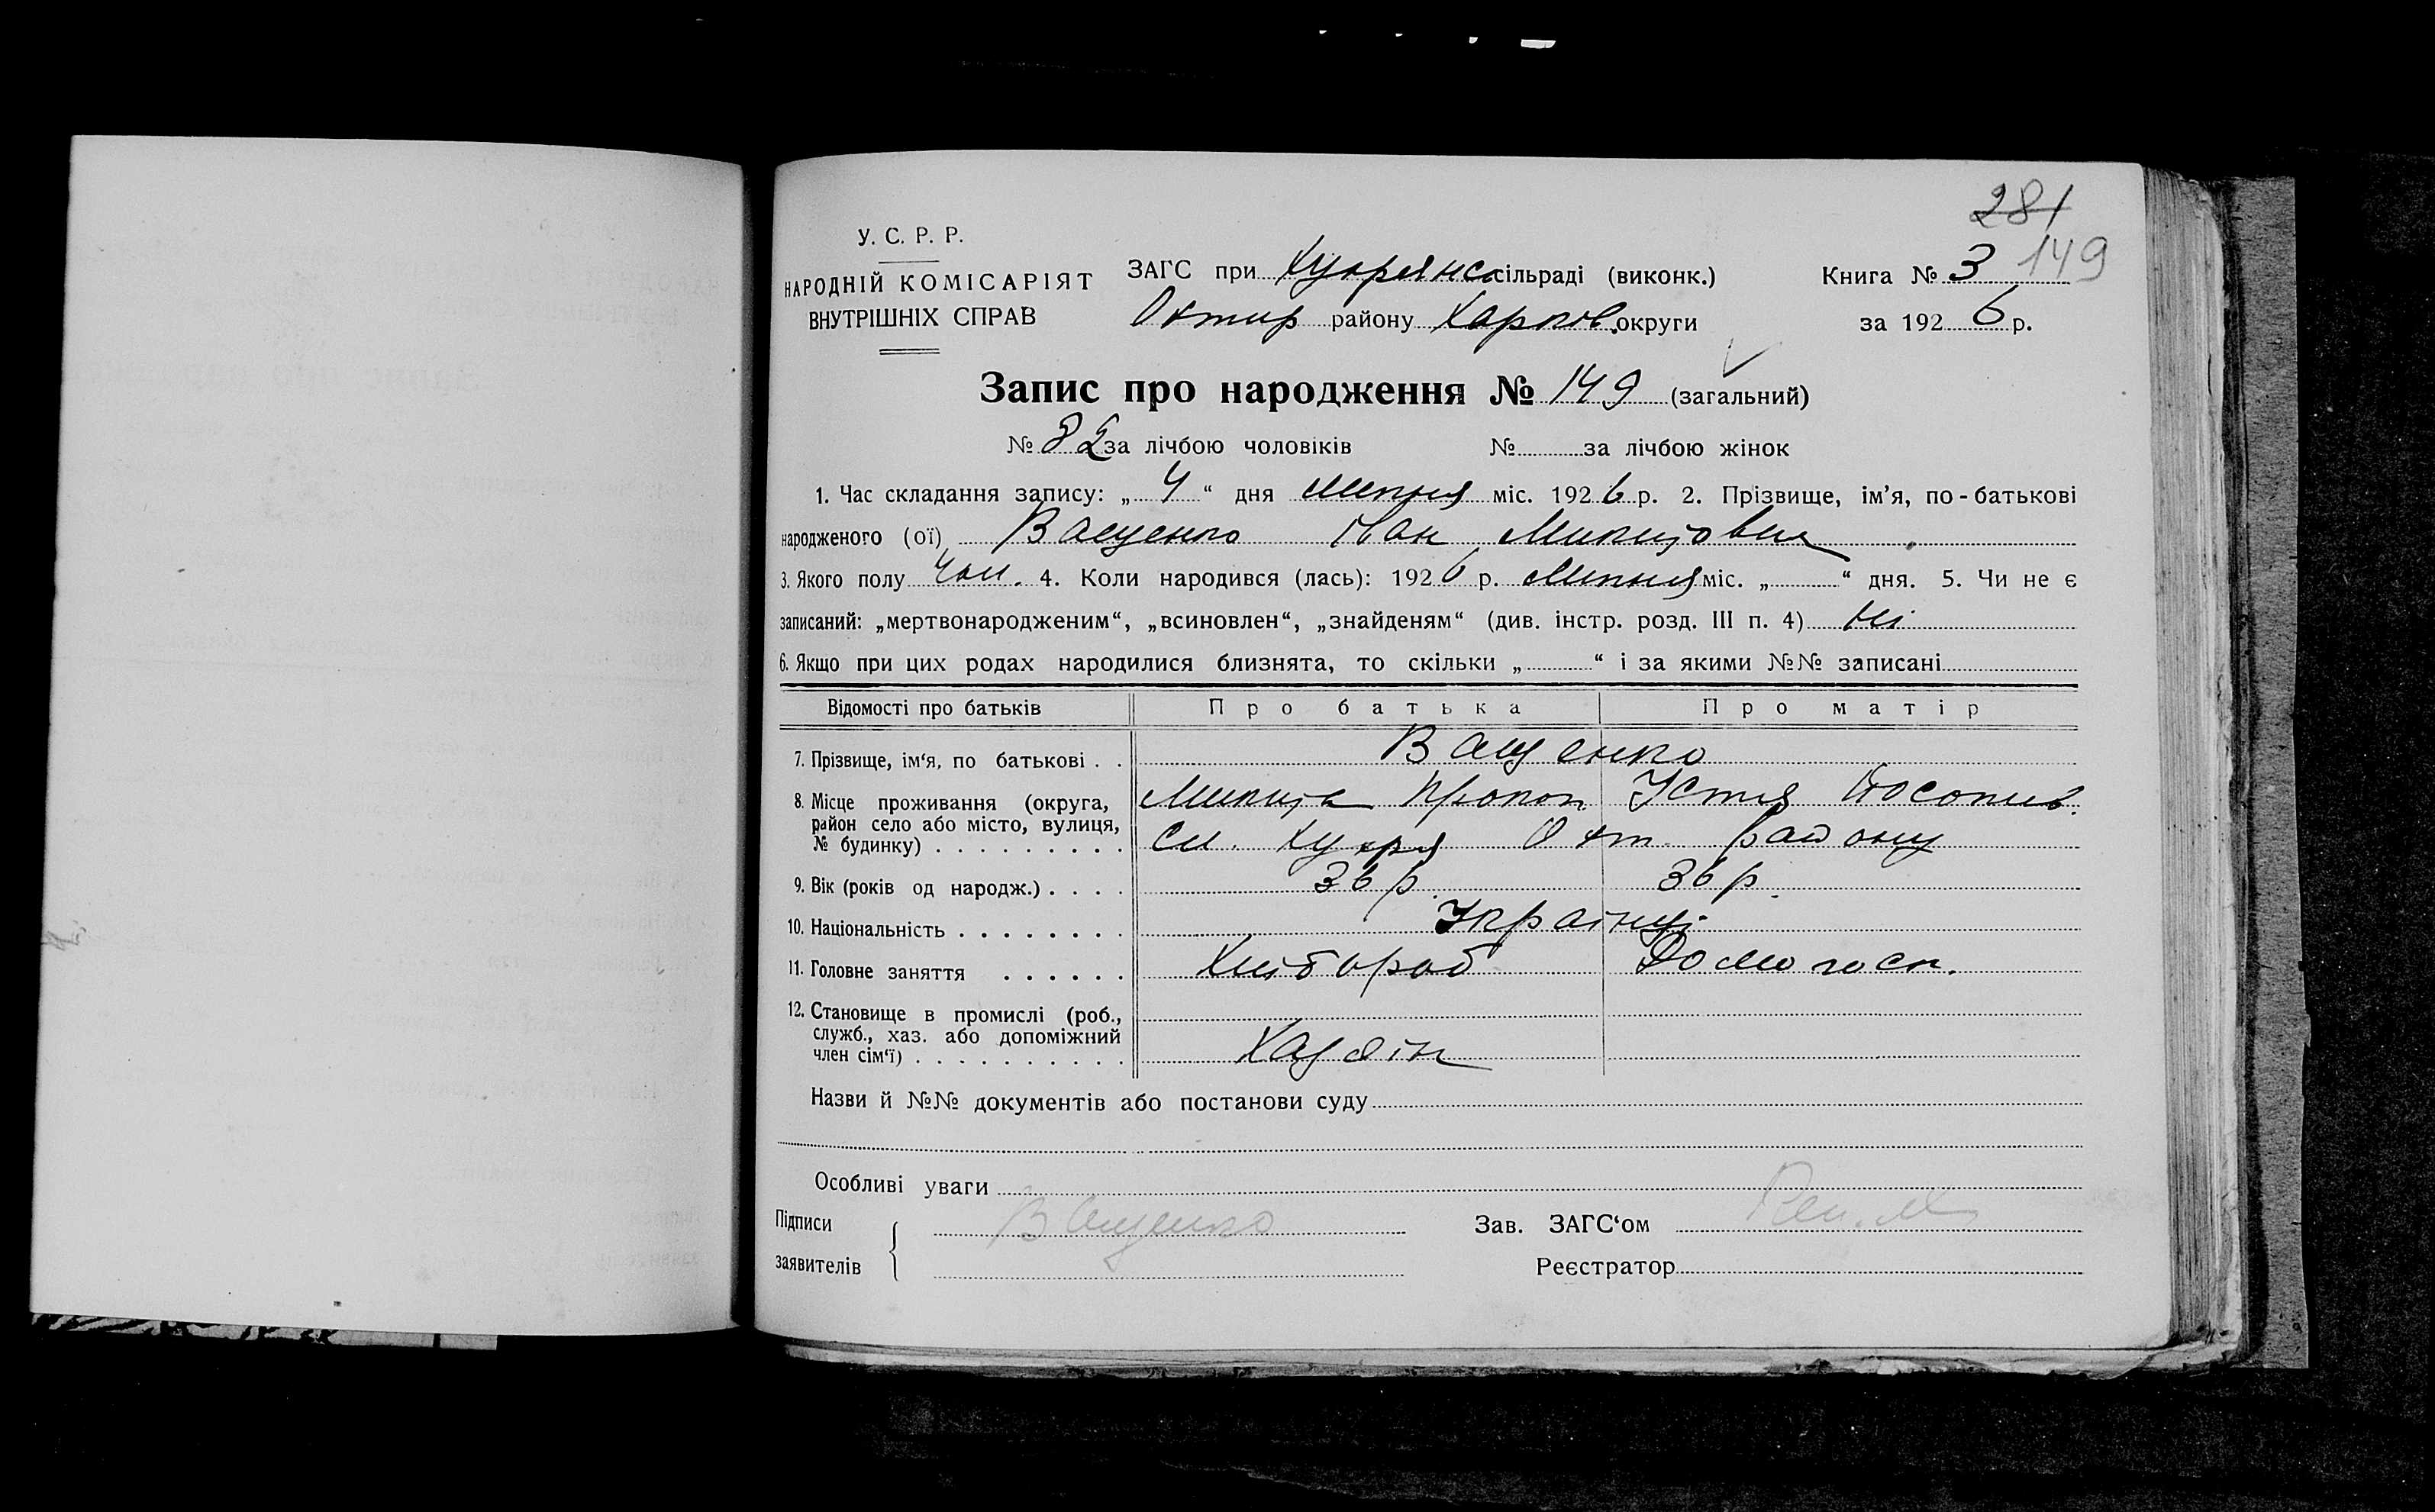 281
149
У. С. Р. Р.
НАРОДНІЙ КОМІСАРІЯТ
ВНУТРІШНІХ СПРАВ
ЗАГС при Хухрянск сільраді (виконк.)
Охтир району Харков. округи
Книга № 3
за 1926 р.
Запис про народження № 149 (загальний)
№ 82 за лічбою чоловіків № за лічбою жінок
1. Час складання запису: „ 4 “ дня липня міс. 1926 р. 2. Прізвище, ім’я, по-батькові
народженого (ої) Ващенко Іван Микитович
3. Якого полу чол. 4. Коли народився (лась): 1926 р. Липня міс. „ “ дня. 5. Чи не є
записаний: „мертвонародженим“, „всиновлен“, „знайденям“ (див. інстр. розд. III п. 4) ні
6. Якщо при цих родах народилися близнята, то скільки „ “ і за якими №№ записані
Відомості про батьків Про батька Про матір
7. Прізвище, ім‘я, по батькові . . Ващенко
Микита Прокоп Устя
8. Місце проживання (округа,
район село або місто, вулиця,
№ будинку) . . . . . . . . . сл. Хухря Охт. району
9. Вік (років од народж.) . . . . 36 р. 36 р.
10. Національність . . . . . . . . Українці
11. Головне заняття . . . . . . Хлібороб Домогосп.
12. Становище в промислі (роб.,
служб., хаз. або допоміжний
член сім‘ї) . . . . . . . . . . Хазяїн
Назви й №№ документів або постанови суду
Особливі уваги
Підписи
заявителів
Ващенко
Зав. ЗАГС‘ом
Реєстратор